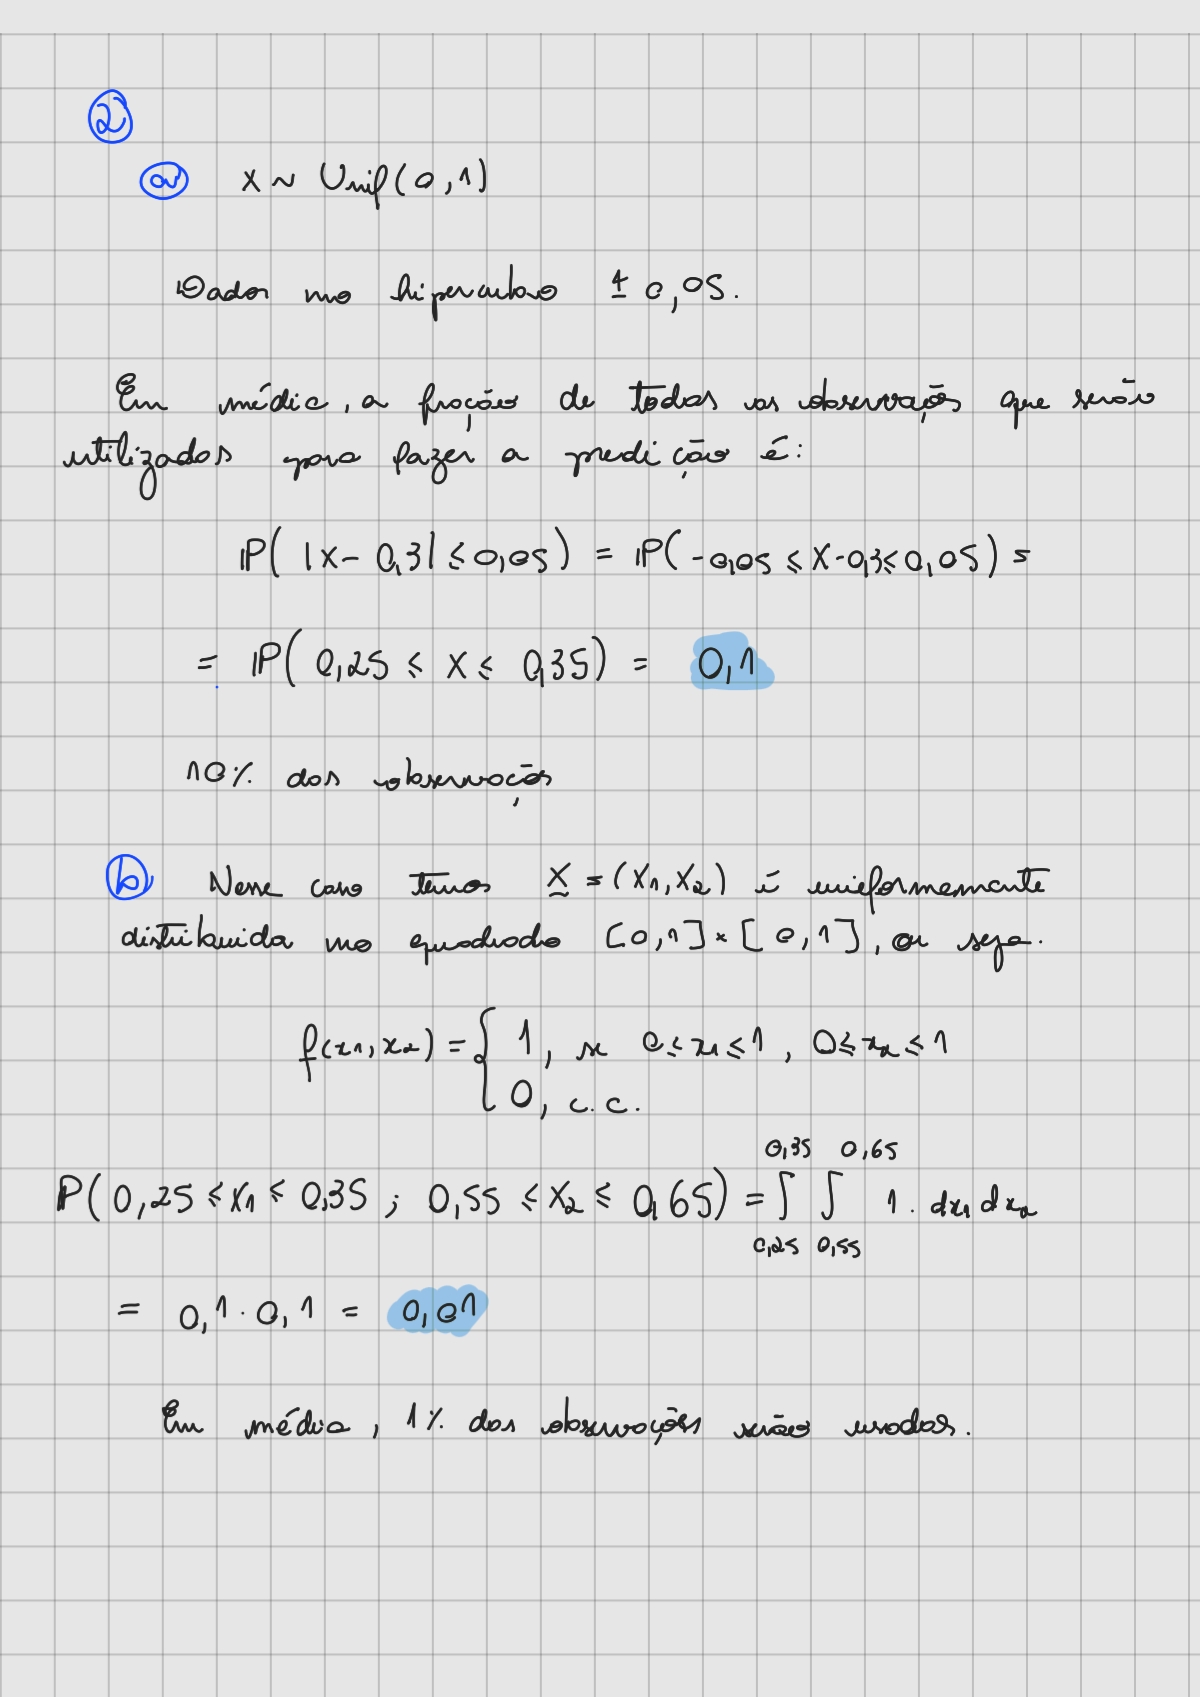 2
a X ~ Unif(0,1)
Dados no hipercubo ± 0,05.
Em média, a fração de todas as observações que serão
utilizados para fazer a predição é:
P( |X - 0,3| ≤ 0,05) = P( -0,05 ≤ X - 0,3 ≤ 0,05) =
= P( 0,25 ≤ X ≤ 0,35) = 0,1
10% das observações
b Nesse caso temos X = (X1, X2) é uniformemente
distribuida no quadrado [0,1] x [0,1], ou seja.
f(x1, x2) = { 1, se 0 ≤ x1 ≤ 1, 0 ≤ x2 ≤ 1
0, c.c.
0,35 0,65
P( 0,25 ≤ X1 ≤ 0,35 ; 0,55 ≤ X2 ≤ 0,65) = ∫ ∫ 1. dx1 dx2
0,25 0,55
= 0,1 · 0,1 = 0,01
Em média, 1% das observações serão usadas.